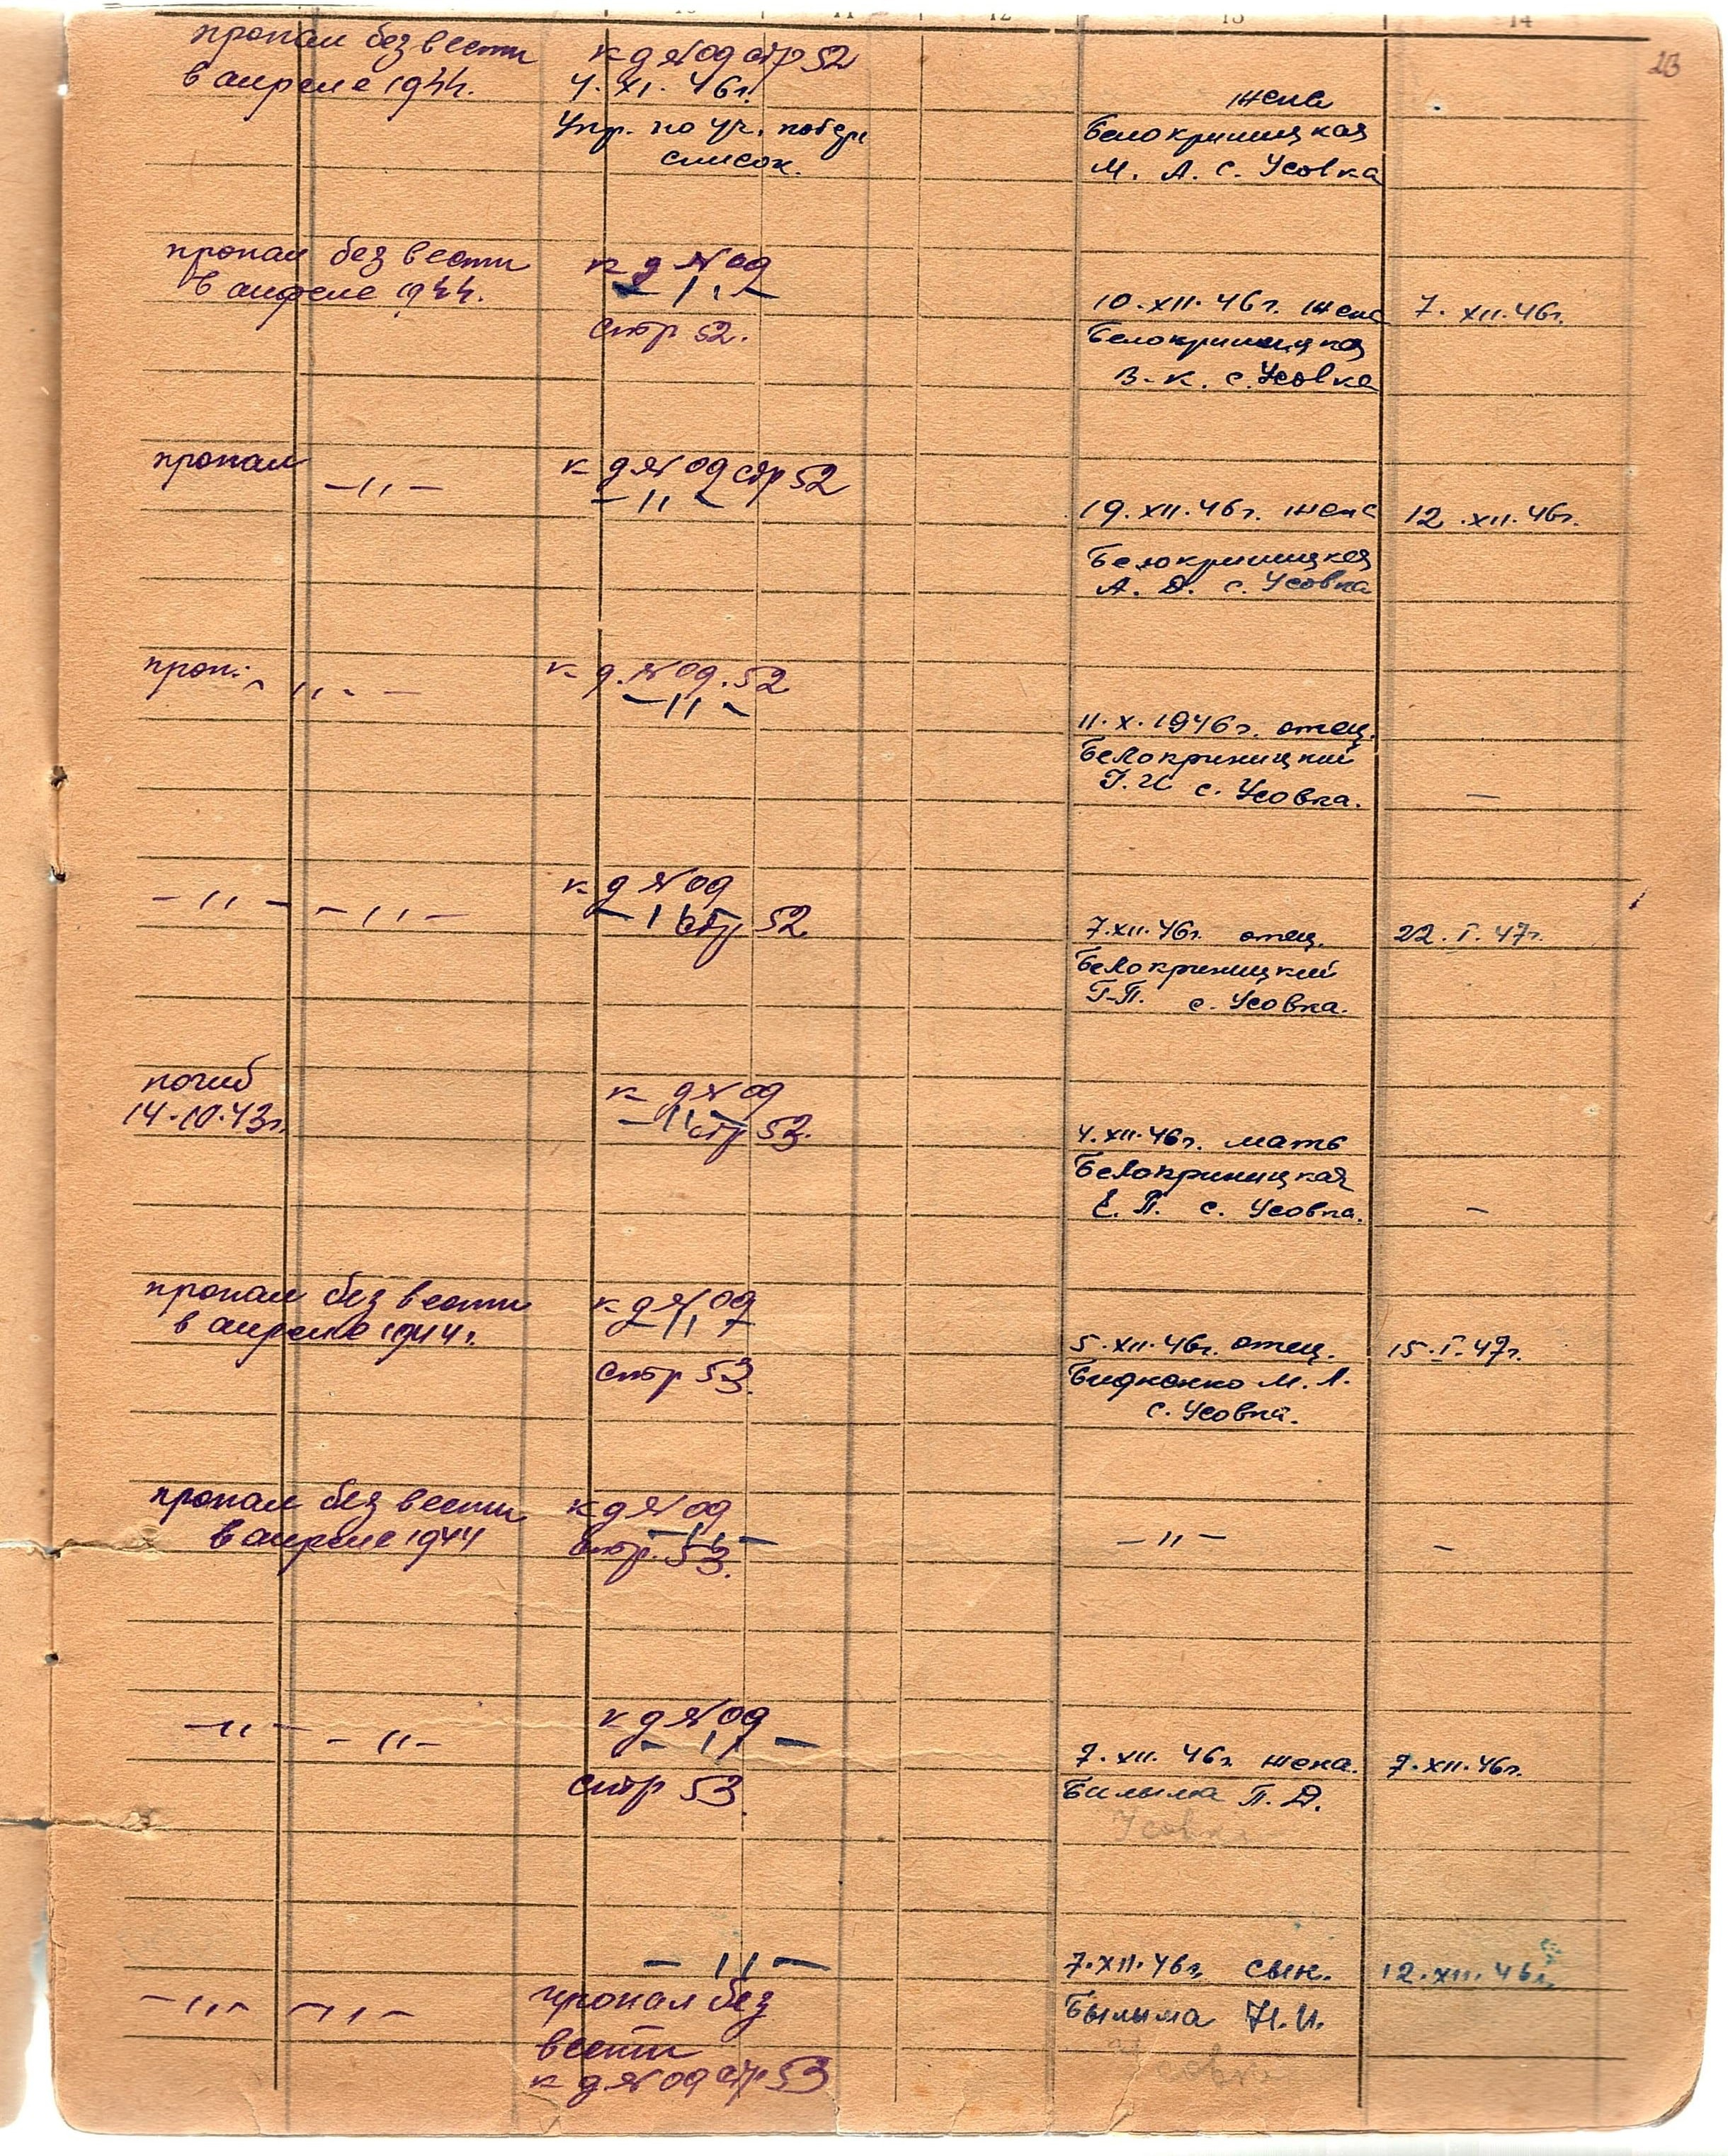 10 11 12 13 14
23
пропал без вести
в апреле 1944.
к д № 09 стр 52
4. XI. 46г.
Упр. по уч. потерь
список.
жена
Белокриницкая
М. А. с. Усовка
пропал без вести
в апреле 1944.
к д № 09
— 〃 —
стр 52.
10. XII. 46г. жена
Белокриницкая
В. К. с. Усовка
7. XII. 46г.
пропал — 〃 —
к д № 09 стр 52
— 〃 —
19. XII. 46г. жена
Белокриницкая
А. Д. с. Усовка
12. XII. 46г.
проп. — 〃 — —
к д. № 09. 52
— 〃 —
11. X. 1946г. отец.
Белокриницкий
Г. И с. Усовка.
—
— 〃 — — 〃 —
к д № 09
— 〃 — стр 52
7. XII. 46г. отец.
Белокриницкий
Г. П. с. Усовка.
22. I. 47г.
погиб
14.10.43г.
к д № 09
— 〃 — стр 53.
4. XII. 46г. мать
Белокриницкая
Е. П. с. Усовка.
—
пропал без вести
в апреле 1944г.
к д № 09
— 〃 —
стр 53.
5. XII. 46г. отец.
М. Л.
с. Усовка.
15. I. 47г.
пропал без вести
в апреле 1944
к д № 09
— 〃 —
стр. 53.
— 〃 —
—
— 〃 — — 〃 —
к д № 09
— 〃 —
стр 53.
7. XII. 46г. жена.
Билыма П. Д.
Усовка
7. XII. 46г.
— 〃 — — 〃 —
— 〃 —
пропал без
вести
к д № 09 стр 53
7. XII. 46г. сын.
Былыма Н. И.
Усовка
12. XII. 46г.